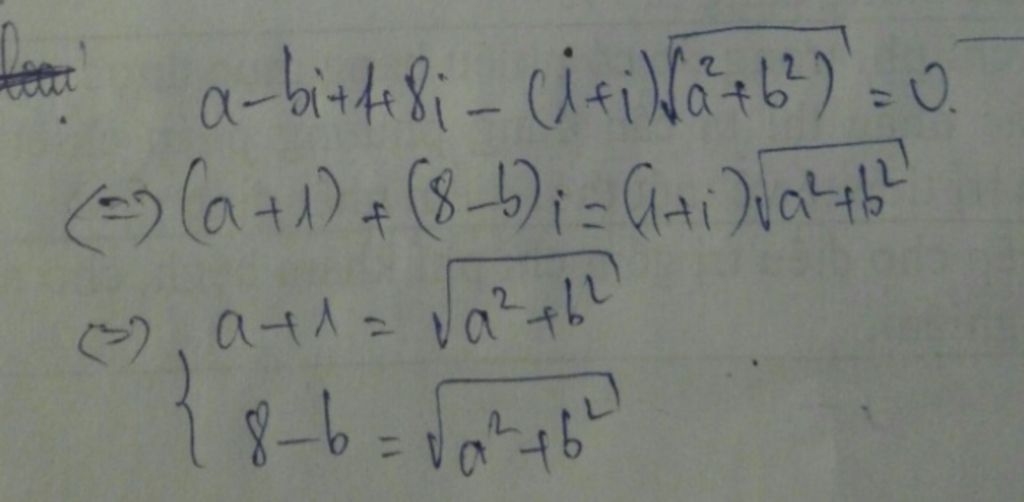 a-bi+1+8i - (1+i)√(a²+b²) = 0.
<=> (a+1) + (8-b)i = (1+i)√(a²+b²)
<=> { a+1 = √(a²+b²)
8-b = √(a²+b²)